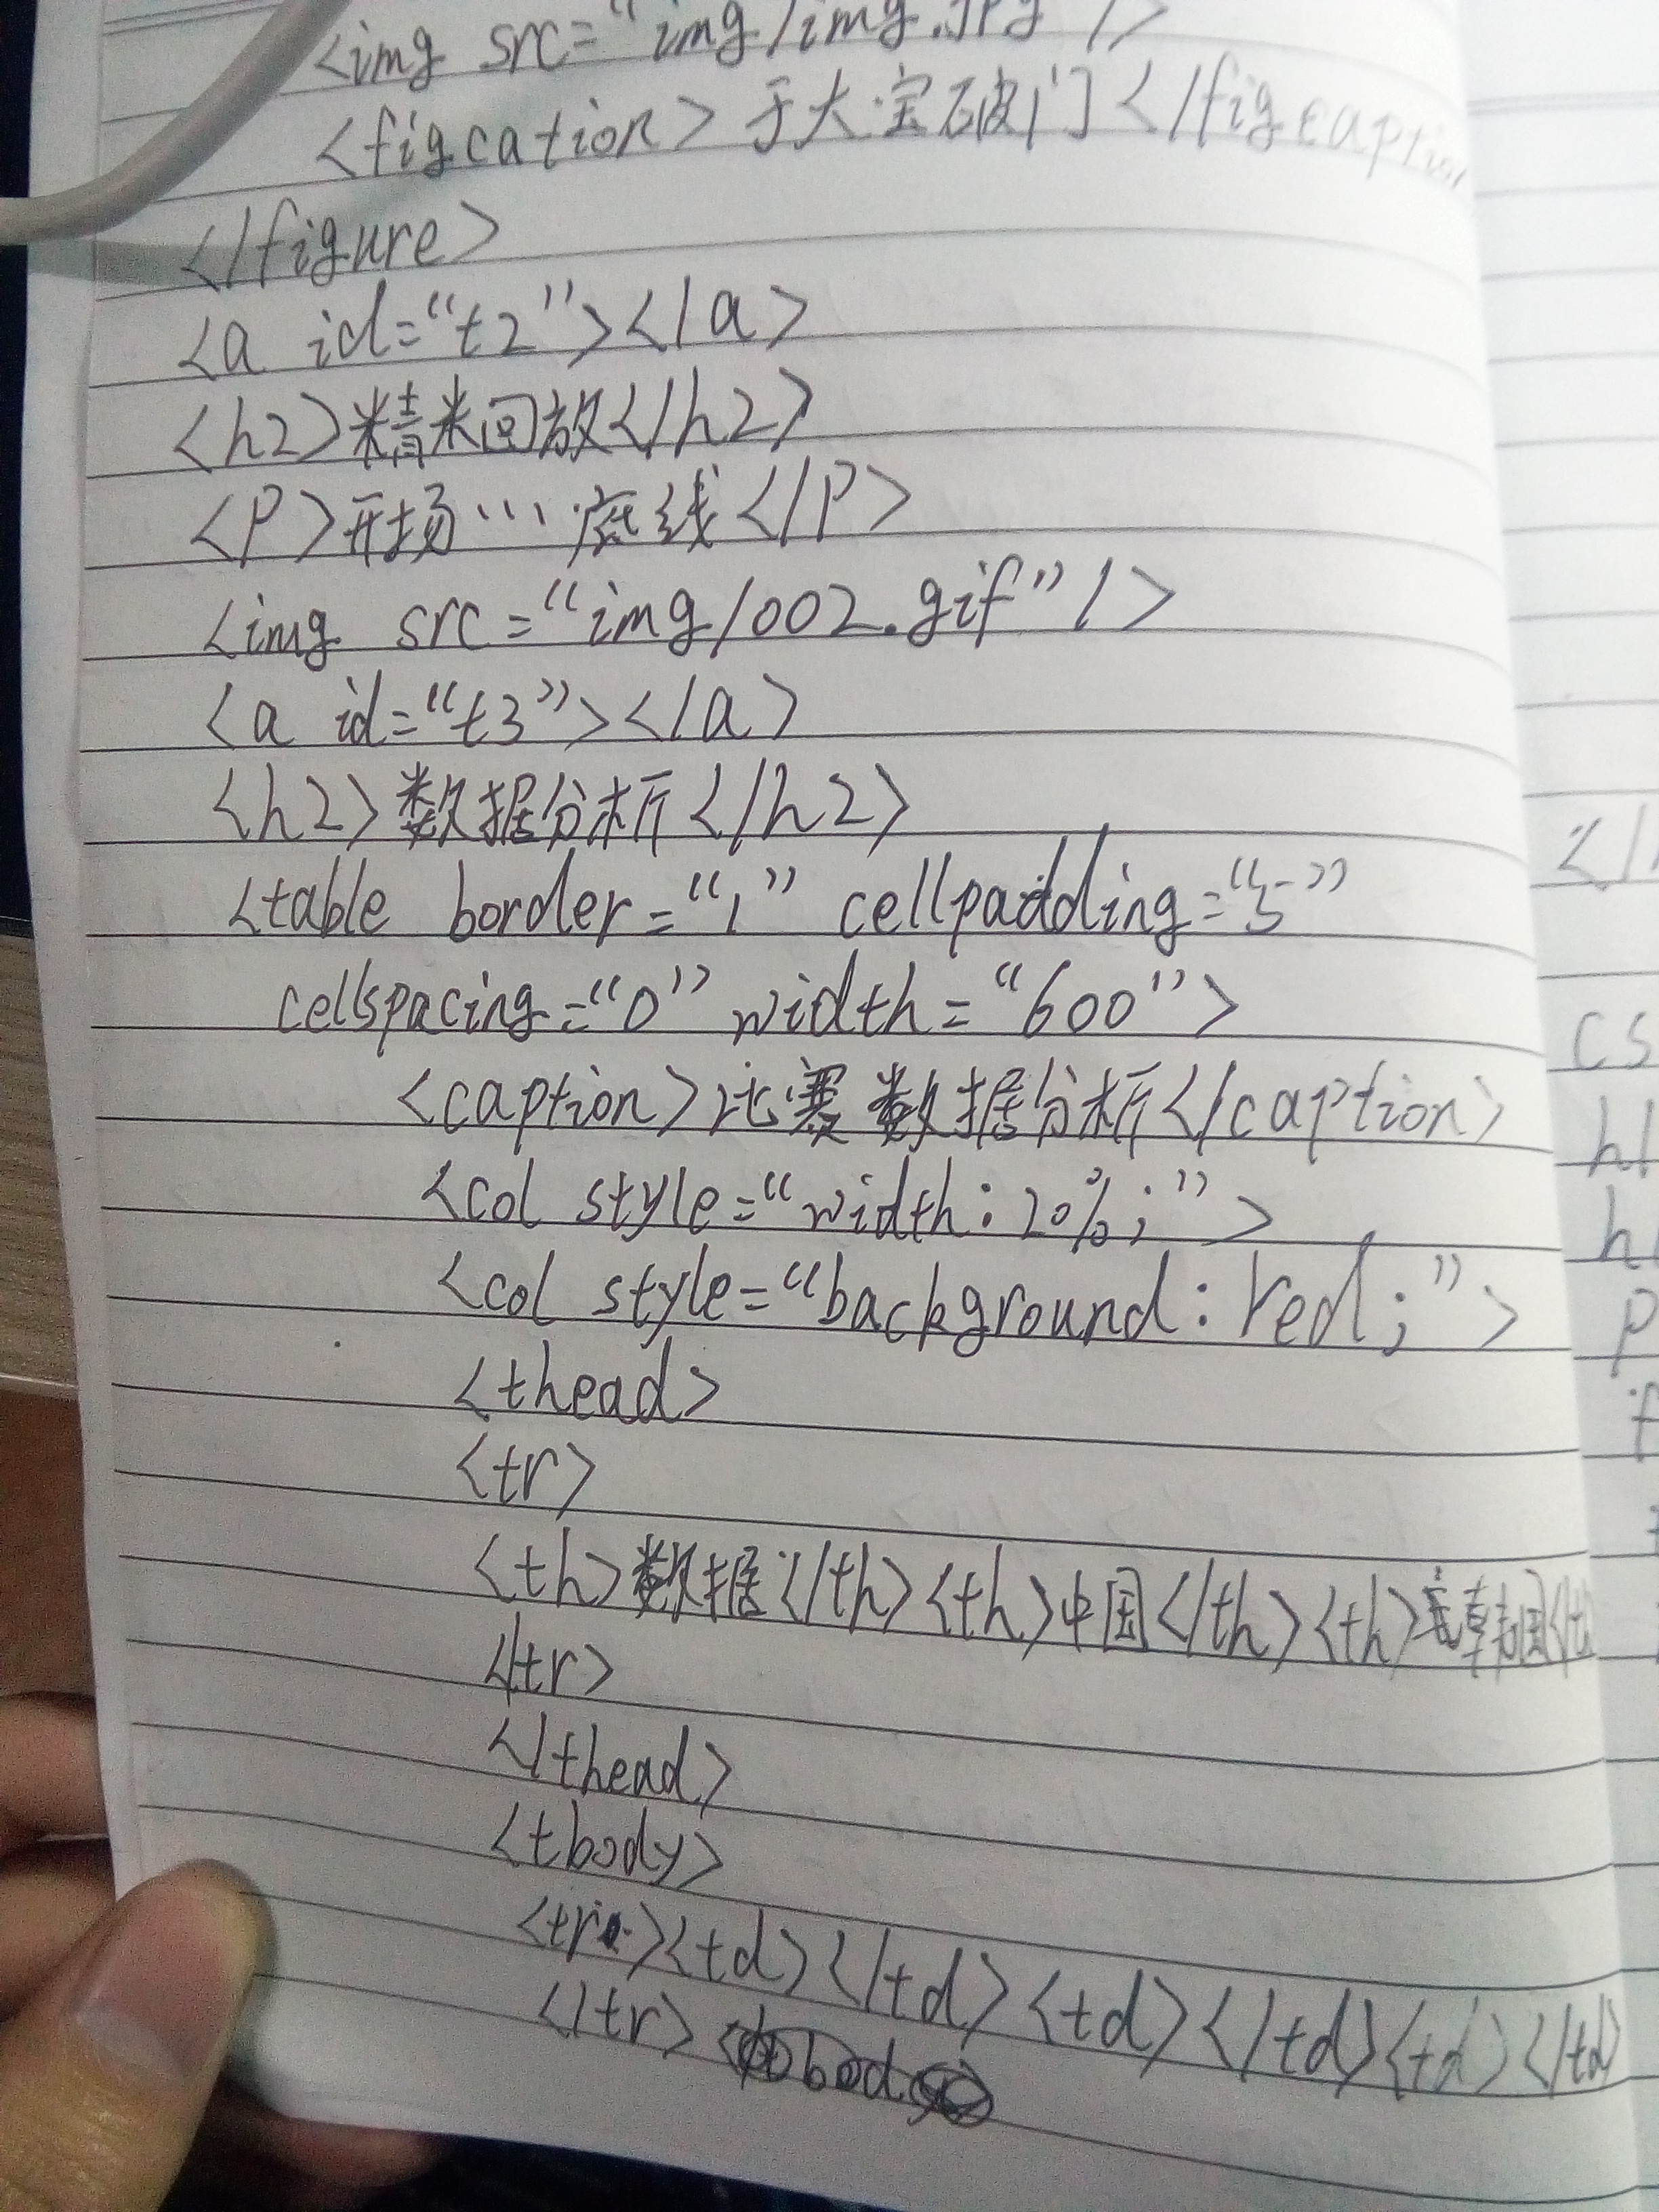 <img src="img/img.jpg" />
<figcation>于大宝破门</figcaption
</figure>
<a id="t2"></a>
<h2>精米回放</h2>
<P>开场…底线</P>
<img src="img/002.gif"/>
<a id="t3"></a>
<h2>数据分析</h2>
<table border="1" cellpadding="5"
cellspacing="0" width="600">
<caption>比赛数据分析</caption>
<col style="width:20%;">
<col style="background:red;">
<thead>
<tr>
<th>数据</th><th>中国</th><th>韩国</t
</tr>
</thead>
<tbody>
<tr><td></td><td></td><td></td
</tr>
</
cs
h1
h
p
f